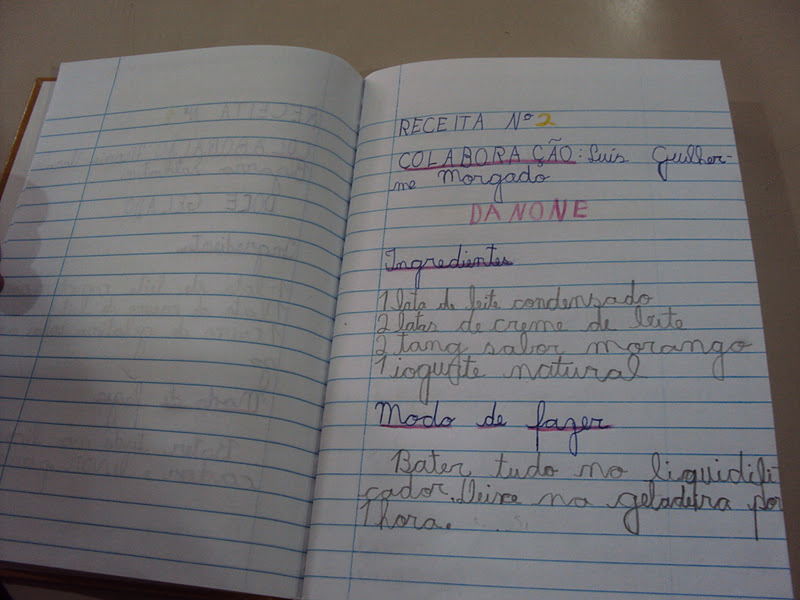 RECEITA Nº 2
COLABORAÇÃO: Luis Gulher-
me Morgado
DANONE
Ingredientes
1 lata de leite condensado
2 latas de creme de leite
2 tang sabor morango
1 iogurte natural
Modo de fazer
Bater tudo no liquidifi
cador. Deixe na geladeira por
1 hora.